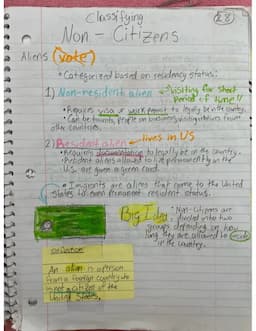 Classifying
28
Non - Citizens
Aliens (vote)
• Categorized based on residency status.
1) Non-resident alien → visiting for short
period of time!!
• Requires visa or work permit to legally be in the country.
• Can be tourists, people on business, visiting relatives from
other countries.
2) Resident alien → lives in US
• Requires documentation to legally be in the country.
• Resident aliens allowed to live permanently in the
U.S. are given a green card.
• Imigrants are aliens that come to the United
States to earn permanent resident status.
Big Idea: • Non-citizens are
divided into two
groups depending on how
long they are allowed to
in the country.
An alien is a person
from a foreign country who
is not a citizen of the
United States.